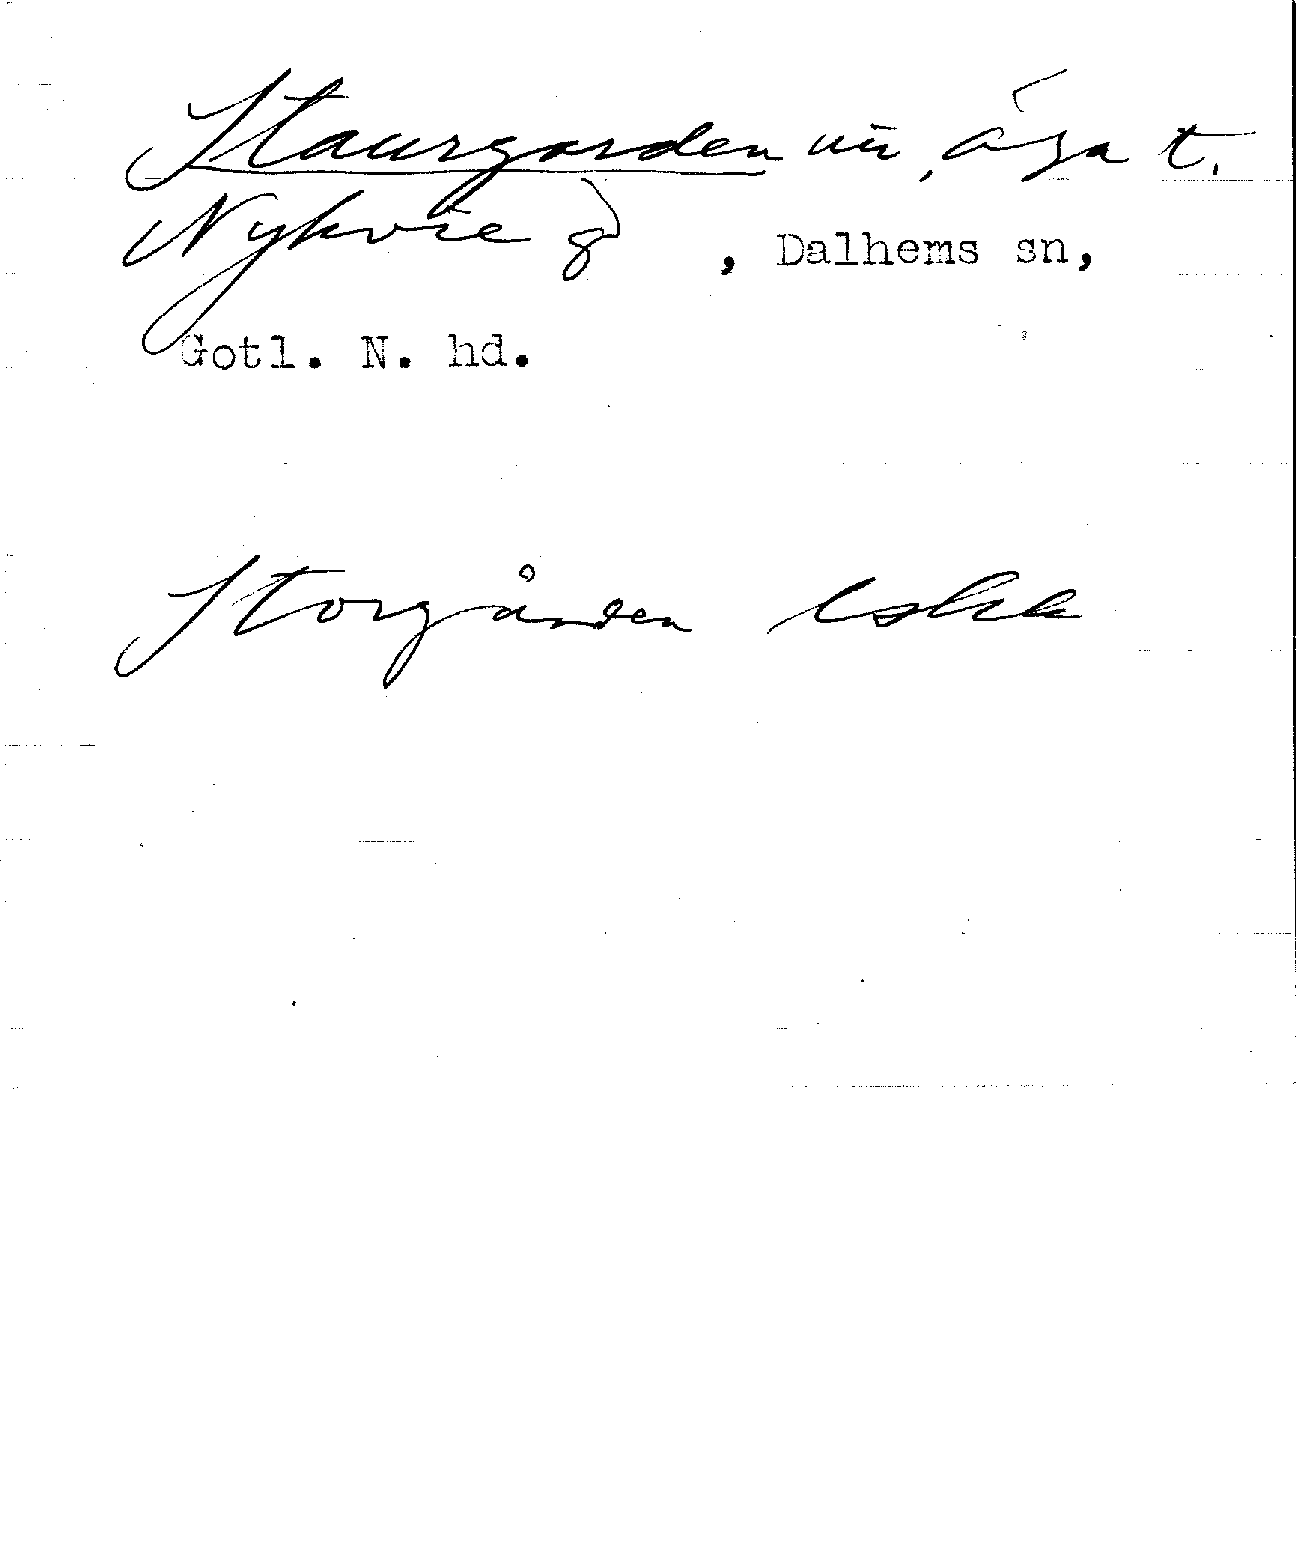 Staurgarden nu, äga t.
Nykvie g , Dalhems sn,
Gotl. N. hd.
Storgården